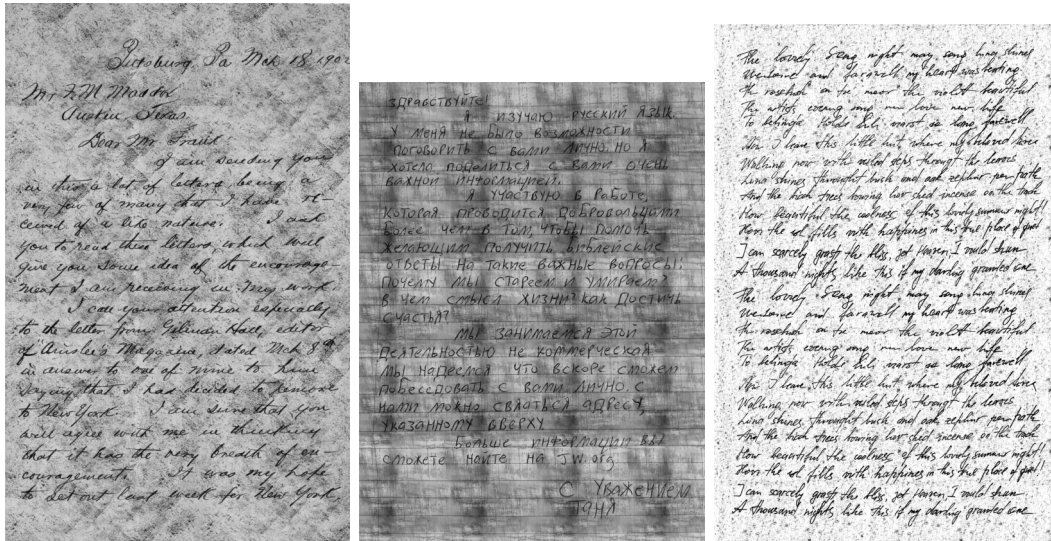 Pittsburg, Pa Mch 18, 1902
Mr F. M. Maddox
Austin Texas.
Dear Mr Frank
I am sending you
in this a lot of letters being a
very few of many that I have re-
ceived of a like nature. I ask
you to read these letters, which will
give you some idea of the encourage-
ment I am receiving in my work.
I call your attention especially
to the letter from Gilman Hall, editor
of Ainslee's Magazine, dated Mch 8th
in answer to one of mine to him
saying that I had decided to remove
to New York. I am sure that you
will agree with me in thinking
that it has the very breath of en-
couragement. It was my hope
to set out last week for New York,
ЗДРАВСТВУЙТЕ!
Я ИЗУЧАЮ РУССКИЙ ЯЗЫК.
У МЕНЯ НЕ БЫЛО ВОЗМОЖНОСТИ
ПОГОВОРИТЬ С ВАМИ ЛИЧНО, НО Я
ХОТЕЛА ПОДЕЛИТЬСЯ С ВАМИ ОЧЕНЬ
ВАЖНОЙ ИНФОРМАЦИЕЙ.
Я УЧАСТВУЮ В РАБОТЕ,
КОТОРАЯ ПРОВОДИТСЯ ДОБРОВОЛЬЦАМИ
БОЛЕЕ ЧЕМ В ТОМ, ЧТОБЫ ПОМОЧЬ
ЖЕЛАЮЩИМ ПОЛУЧИТЬ БИБЛЕЙСКИЕ
ОТВЕТЫ НА ТАКИЕ ВАЖНЫЕ ВОПРОСЫ:
ПОЧЕМУ МЫ СТАРЕЕМ И УМИРАЕМ?
В ЧЕМ СМЫСЛ ЖИЗНИ? КАК ДОСТИЧЬ
СЧАСТЬЯ?
МЫ ЗАНИМАЕМСЯ ЭТОЙ
ДЕЯТЕЛЬНОСТЬЮ НЕ КОММЕРЧЕСКАЯ
МЫ НАДЕЕМСЯ ЧТО ВСКОРЕ СМОЖЕМ
ПОБЕСЕДОВАТЬ С ВАМИ ЛИЧНО. С
НАМИ МОЖНО СВЯАТЬСЯ АДРЕСУ,
УКАЗАННОМУ ВВЕРХУ
БОЛЬШЕ ИНФОРМАЦИИ ВЫ
СМОЖЕТЕ НАЙТЕ НА JW.org
С УВАЖЕНИЕМ
ТАНЯ
The lovely night may song lines shines
and farewell my heart was beating
The rosebud on the moor the violet beautiful
The artists evening song new love new life
To belinda Holds Lili worst se long farewell
Now I leave this little hut, where my beloved lives
Walking now with veiled steps through the leaves
Luna shines through bush and oak zephyr per path
And the birch trees bowing her shed incense on the track
How beautiful the coolness of this lovely summer night!
How the soul fills with happiness in this true place of quiet!
I can scarcely grasp the bliss, yet Heaven, I would shun
A thousand nights like this if my darling granted one
The lovely night may song lines shines
and farewell my heart was beating
The rosebud on the moor the violet beautiful
The artists evening song new love new life
To belinda Holds Lili worst se long farewell
Now I leave this little hut, where my beloved lives
Walking now with veiled steps through the leaves
Luna shines through bush and oak zephyr per path
And the birch trees bowing her shed incense on the track
How beautiful the coolness of this lovely summer night!
How the soul fills with happiness in this true place of quiet!
I can scarcely grasp the bliss, yet Heaven, I would shun
A thousand nights like this if my darling granted one